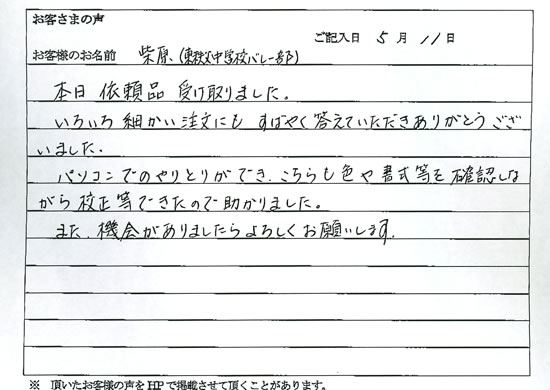 お客さまの声
ご記入日 5月 11日
お客様のお名前 柴原(東秩父中学校バレー部)
本日 依頼品 受け取りました。
いろいろ細かい注文にも すばやく答えていただきありがとうござ
いました.
パソコンでのやりとりができ、こちらも色や書式等を確認しな
がら校正等できたので助かりました。
また、機会がありましたらよろしくお願いします.
※ 頂いたお客様の声をHPで掲載させて頂くことがあります。